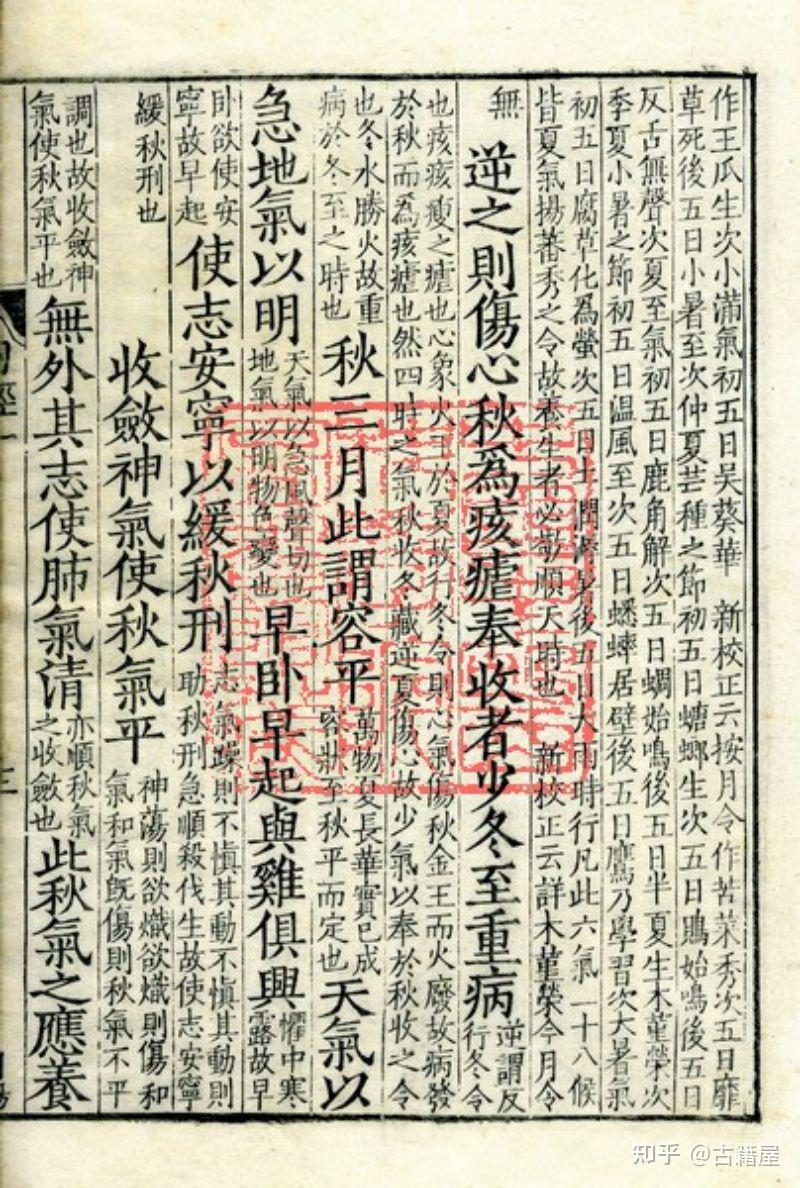 作王瓜生次小滿氣初五日吳葵華　新校正云按月令作苦菜秀次五日靡
草死後五日小暑至次仲夏芒種之節初五日螳螂生次五日鵙始鳴後五日
反舌無聲次夏至氣初五日鹿角解次五日蜩始鳴後五日半夏生木菫榮次
季夏小暑之節初五日温風至次五日蟋蟀居壁後五日鷹乃學習次大暑氣
初五日腐草化爲螢次五日土潤溽暑後五日大雨時行凡此六氣一十八候
皆夏氣揚蕃秀之令故養生者必敬順天時也　新校正云詳木菫榮今月令
無
逆之則傷心秋爲痎瘧奉收者少冬至重病
逆謂反
行冬令
也痎痎瘦之瘧也心象火王於夏故行冬令則心氣傷秋金王而火廢故病發
於秋而爲痎瘧也然四時之氣秋收冬藏逆夏傷心故少氣以奉於秋收之令
也冬水勝火故重
病於冬至之時也
秋三月此謂容平
萬物夏長華實已成
容狀至秋平而定也
天氣以
急地氣以明
天氣以急風聲切也
地氣以明物色變也
早卧早起與雞俱興
懼中寒
露故早
卧欲使安
寧故早起
使志安寧以緩秋刑
志氣躁則不慎其動不慎其動則
助秋刑急順殺伐生故使志安寧
緩秋刑也
收斂神氣使秋氣平
神蕩則欲熾欲熾則傷和
氣和氣既傷則秋氣不平
調也故收斂神
氣使秋氣平也
無外其志使肺氣清
亦順秋氣
之收斂也
此秋氣之應養
三
知乎 @古籍屋